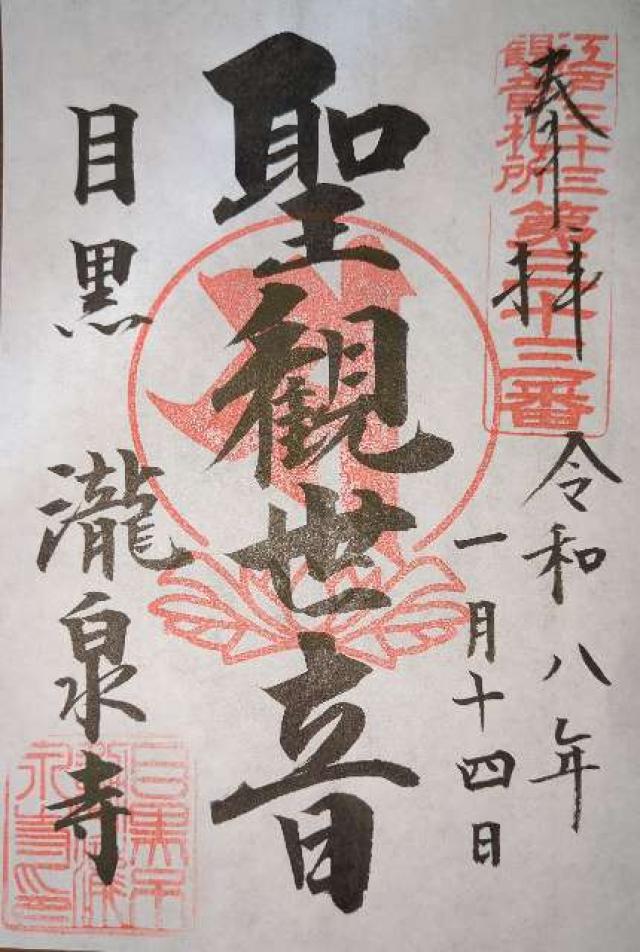 江戸三十三
観音札所
第三十三番
奉拝
令和八年
一月十四日
聖観世音
目黒 瀧泉寺